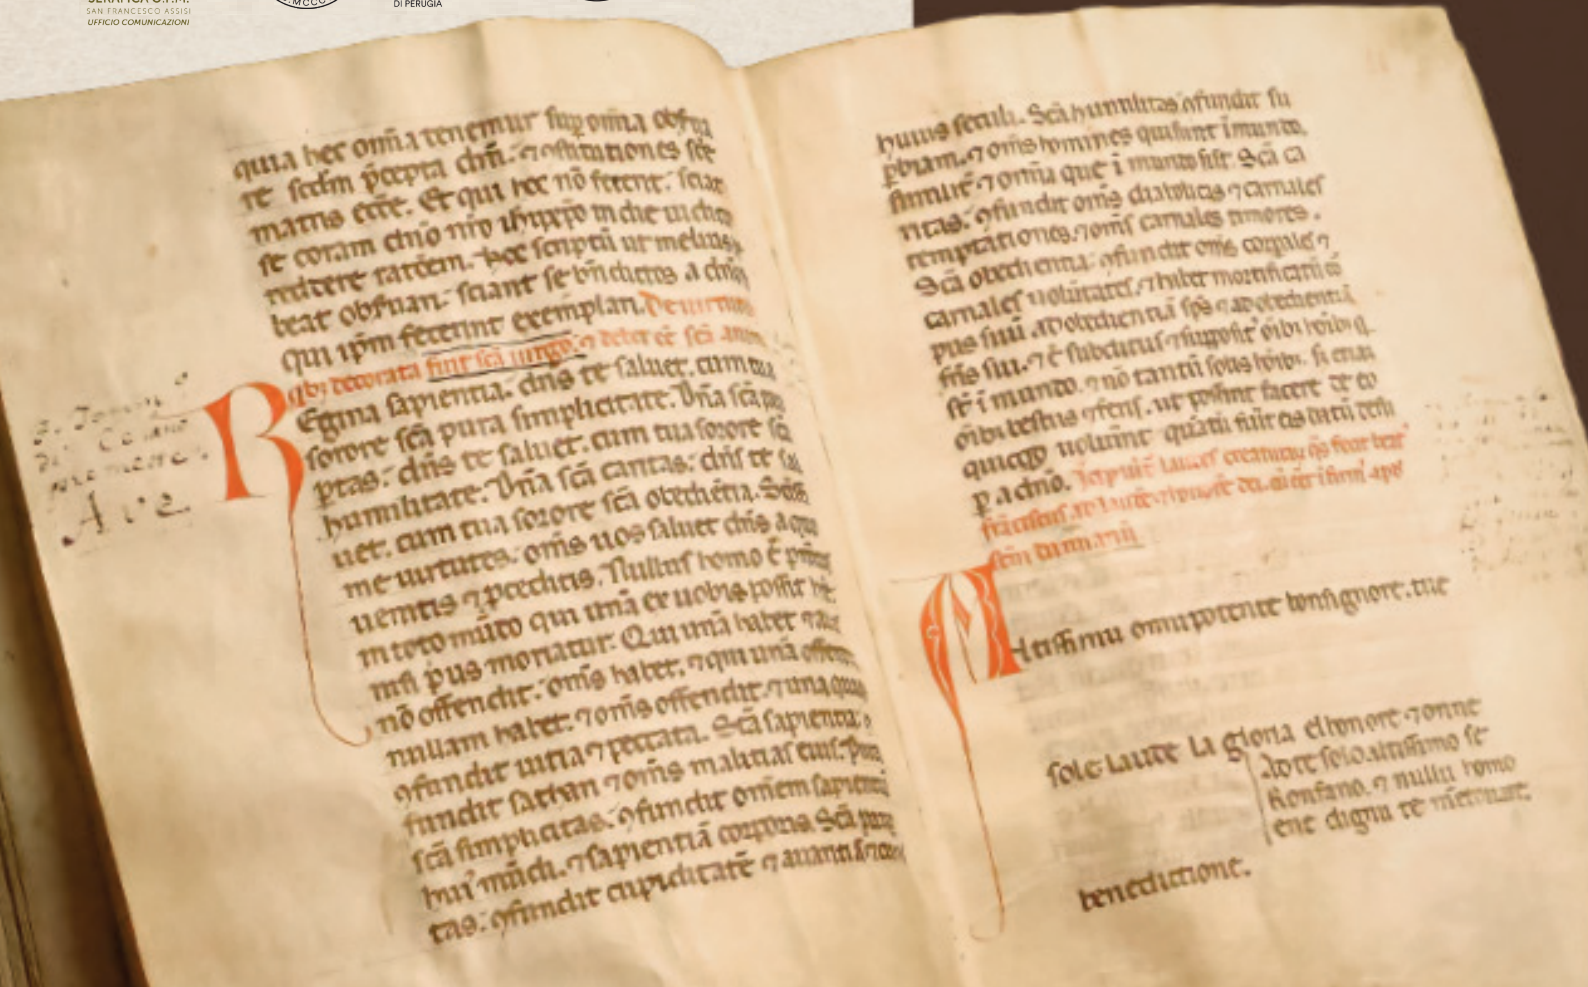 SERAFICA O.F.M.
SAN FRANCESCO ASSISI
UFFICIO COMUNICAZIONI
MCCC
DI PERUGIA
quia hec om̄ia tenemur sup om̄ia obẜua
re scd̄m p̄cepta dn̄i. ⁊ ↄstitutiones sc̄e
matris ecc̄e. Et qui hoc nō fecerit. sciat
se coram dn̄o nr̄o ih̄u xp̄o in die iudicii
reddere ratōem. Hoc scriptū ut melius
beat obẜuari. sciant se bn̄dictos a dn̄o
qui ip̄m fecerint exemplari. De uirtuti
qibꝫ decorata fuit sc̄a uirgo. ⁊ debet eē sc̄a anima
REgina sapientia. dn̄s te saluet. cum tua
sorore sc̄a pura simplicitate. Dn̄a sc̄a pau
ptas. dn̄s te saluet. cum tua sorore sc̄a
humilitate. Dn̄a sc̄a caritas. dn̄s te sal
uet. cum tua sorore sc̄a obediētia. Sc̄issi
me uirtutes. om̄s uos saluet dn̄s a quo
uenitis ⁊ p̄ceditis. Nullus homo ē p̄nitus
in toto mūdo qui unā ex uobis possit
nisi p̄us moriatur. Qui unā habet ⁊ alias
nō offendit. om̄s habet. ⁊ qui unā offendit
nullam habet. ⁊ om̄s offendit. ⁊ una queqꝫ
ↄfundit uitia ⁊ peccata. Sc̄a sapientia
ↄfundit sathan ⁊ om̄s malitias eius. Pura
sc̄a simplicitas. ↄfundit omēm sapientiā
huiꝰ mūdi. ⁊ sapientiā corporis. Sc̄a pauper
tas. ↄfundit cupiditatē ⁊ auaritiā ⁊ curas
Ave
huius seculi. Sc̄a humilitas ↄfundit su
p̄biam. ⁊ om̄s homines qui sunt ī mundo.
similit̄. ⁊ om̄ia que ī mundo sūt. Sc̄a ca
ritas. ↄfundit om̄s diabolicas ⁊ carnales
temptationes. ⁊ om̄s carnales timores.
Sc̄a obedientia. ↄfundit om̄s corpales ⁊
carnales uolūtates. ⁊ habet mortificatū cor
pus suū ad obedientiā sps̄ ⁊ ad obedientiā
fr̄is sui. ⁊ ē subditus ⁊ suppoſit oībꝫ hoībꝫ q
st̄ ī mundo. ⁊ nō tantū solis hoībꝫ. s; etiā
oībꝫ bestiis ⁊ feris. ut possint facere de eo
quicqꝫ uoluint quātū fuit eis datū desu
p a dn̄o. Incipiūt laudes creaturaꝝ q̄s fecit beatꝰ
fraciscus ad laudē ⁊ honorē dei. cū eēt īfirmꝰ apd
scm̄ damianū
Altissimu omnipotente bonsignore. tue
sole laude la gloria elhonore ⁊ onne
benedictione.
Ad te solo. altissimo se
konfano. ⁊ nullu homo
ene dignu te mētouare.